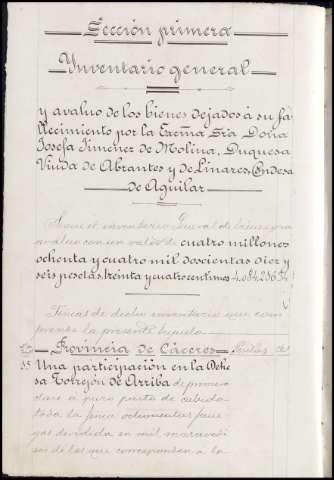 Sección primera
Inventario general
y avaluo de los bienes dejados á su fa
llecimiento por la Excma Sra Doña
Josefa Jimenez de Molina, Duquesa
Viuda de Abrantes y de Linares, Condesa
de Aguilar
Sigue el inventario general de bienes y su
avaluo con un valor de cuatro millones
ochenta y cuatro mil doscientas diez y
seis pesetas, treinta y cuatro centimos 4.084.216'34
Fincas de dicho inventario que com
prende la presente hijuela
Provincia de Cáceres
35 Una participación en la Dehe
sa Torrejón de Arriba de primera
clase á puro pasto de cabida
toda la finca ochocientas fane
gas dividida en mil maravedi
ses de los que corresponden á la